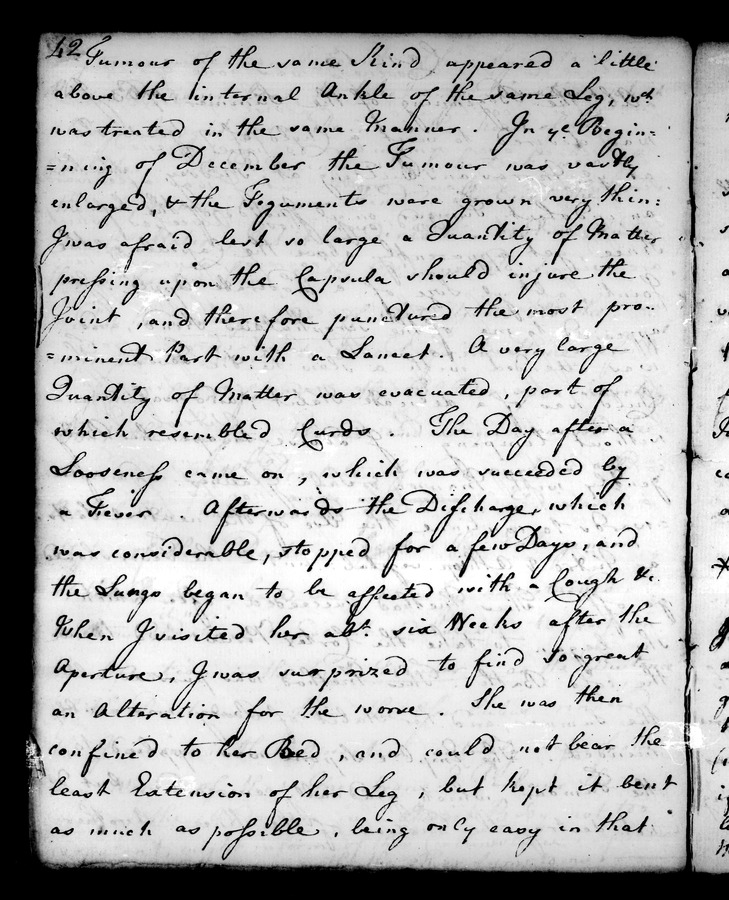 42
Tumour of the same Kind appeared a little
above the internal Ankle of the same Leg, wch
was treated in the same Manner. In ye Begin=
=ning of December the Tumour was vastly
enlarged, & the Teguments were grown very thin:
I was afraid lest so large a Quantity of Matter
pressing upon the Capsula should injure the
Joint, and therefore punctured the most pro=
=minent Part with a Lancet. A very large
Quantity of Matter was evacuated, part of
which resembled Curds. The Day after a
Looseness came on, which was succeeded by
a Fever. Afterwards the Discharge, which
was considerable, stopped for a few Days, and
the Lungs began to be affected with a Cough &c.
When I visited her abt. six Weeks after the
Aperture, I was surprized to find so great
an Alteration for the worse. She was then
confined to her Bed, and could not bear the
least Extension of her Leg, but kept it bent
as much as possible, being only easy in that